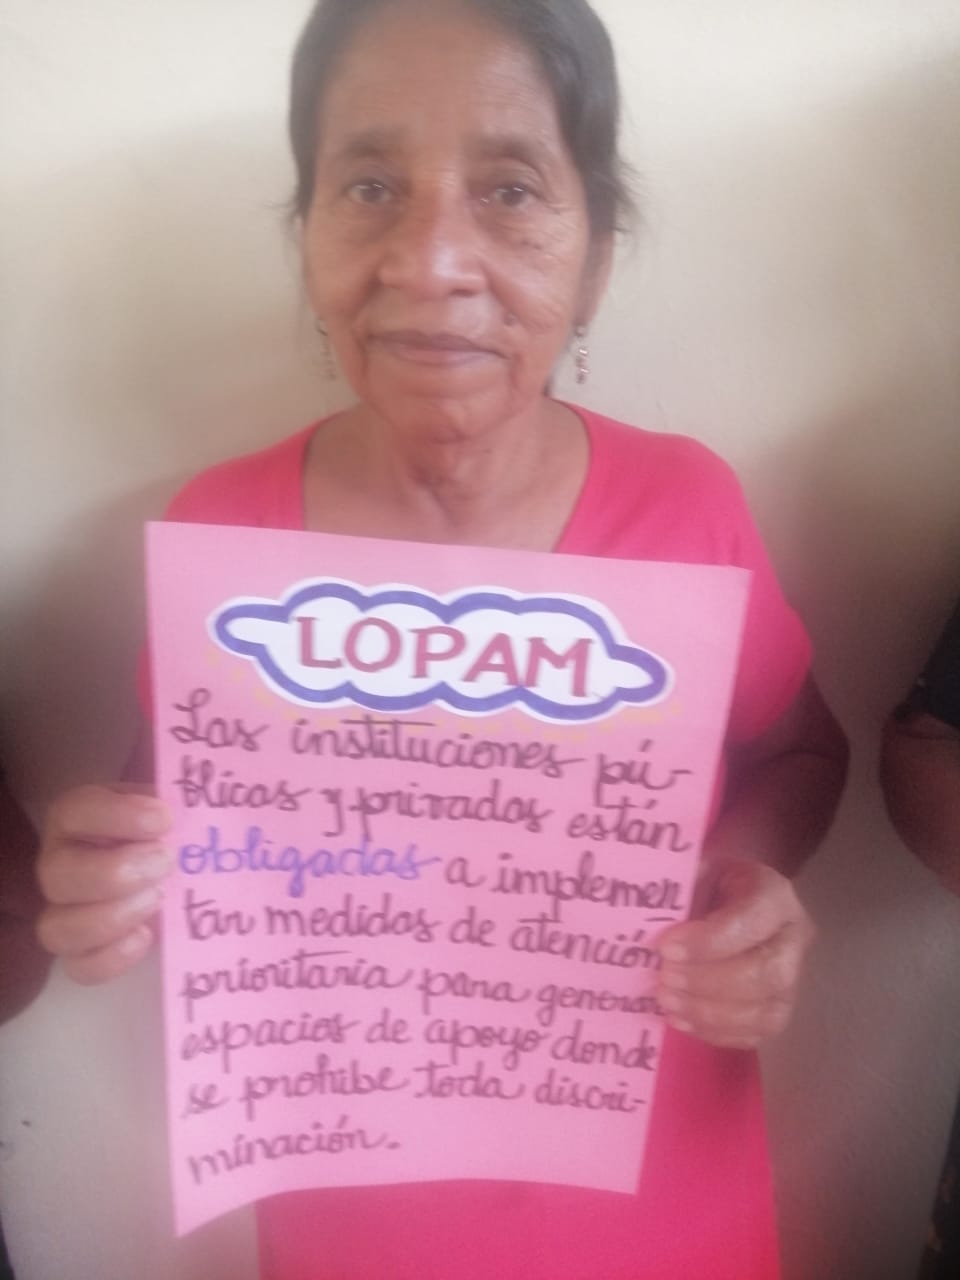 LOPAM
Las instituciones pú-
blicas y privadas están
obligadas a implemen
tar medidas de atención
prioritaria para generar
espacios de apoyo donde
se prohibe toda discri-
minación.